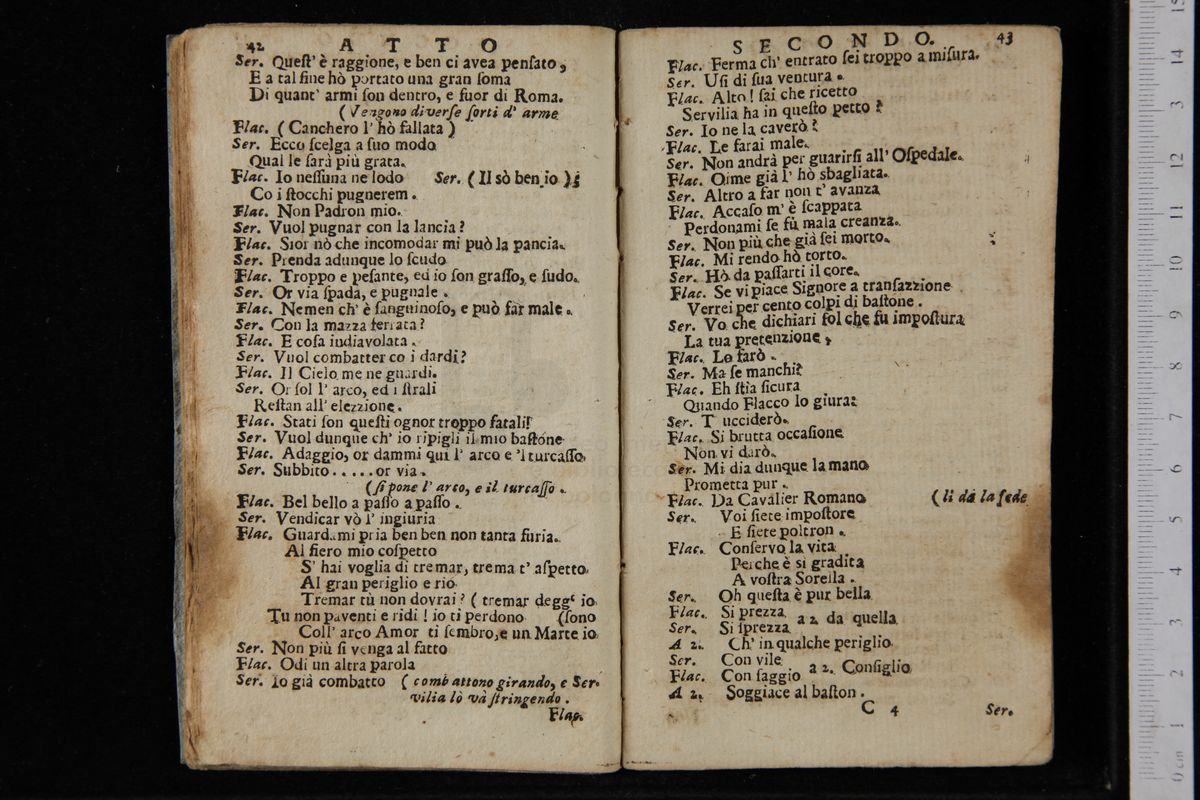 42 A T T O
Ser. Queſt' è raggione, e ben ci avea penſato,
E a tal fine hò portato una gran ſoma
Di quant' armi ſon dentro, e fuor di Roma.
(Vengono diverſe ſorti d' arme
Flac. ( Canchero l' hò fallata )
Ser. Ecco ſcelga a ſuo modo
Qual le ſarà più grata.
Flac. Io neſſuna ne lodo Ser. ( Il sò ben io );
Co i ſtocchi pugnerem.
Flac. Non Padron mio.
Ser. Vuol pugnar con la lancia?
Flac. Sior nò che incomodar mi può la pancia.
Ser. Prenda adunque lo ſcudo
Flac. Troppo e peſante, ed io ſon graſſo, e ſudo.
Ser. Or via ſpada, e pugnale.
Flac. Nemen ch' è ſanguinoſo, e può far male.
Ser. Con la mazza ferrata?
Flac. E coſa indiavolata.
Ser. Vuol combatter co i dardi?
Flac. Il Cielo me ne guardi.
Ser. Or ſol l' arco, ed i ſtrali
Reſtan all' elezzione.
Flac. Stati ſon queſti ognor troppo fatali!
Ser. Vuol dunque ch' io ripigli il mio baſtone
Flac. Adaggio, or dammi quì l' arco e 'l turcaſſo.
Ser. Subbito.....or via.
(ſi pone l' arco, e il turcaſſo.
Flac. Bel bello a paſſo a paſſo.
Ser. Vendicar vò l' ingiuria
Flac. Guardami pria ben ben non tanta furia.
Al fiero mio coſpetto
S' hai voglia di tremar, trema t' aſpetto.
Al gran periglio e rio
Tremar tù non dovrai? ( tremar degg' io
Tu non paventi e ridi! io ti perdono (ſono
Coll' arco Amor ti ſembro, e un Marte io
Ser. Non più ſi venga al fatto
Flac. Odi un altra parola
Ser. Io già combatto ( combattono girando, e Ser-
vilia lò và ſtringendo.
Flac.
S E C O N D O. 43
Flac. Ferma ch' entrato ſei troppo a miſura.
Ser. Uſi di ſua ventura.
Flac. Alto! ſai che ricetto
Servilia ha in queſto petto?
Ser. Io ne la caverò?
Flac. Le farai male.
Ser. Non andrà per guarirſi all' Oſpedale.
Flac. Oime già l' hò sbagliata.
Ser. Altro a far non t' avanza
Flac. Accaſo m' è ſcappata
Perdonami ſe fù mala creanza.
Ser. Non più che già ſei morto.
Flac. Mi rendo hò torto.
Ser. Hò da paſſarti il core.
Flac. Se vi piace Signore a tranſazzione
Verrei per cento colpi di baſtone.
Ser. Vo che dichiari ſol che fu impoſtura
La tua pretenzione,
Flac. Lo farò.
Ser. Ma ſe manchi?
Flac. Eh ſtia ſicura
Quando Flacco lo giura:
Ser. T ucciderò.
Flac. Si brutta occaſione
Non vi darò.
Ser. Mi dia dunque la mano
Prometta pur.
Flac. Da Cavalier Romano (li dà la fede
Ser. Voi ſiete impoſtore
E ſiete poltron.
Flac. Conſervo la vita
Perche è sì gradita
A voſtra Sorella.
Ser. Oh queſta è pur bella
Flac. Si prezza
a 2. da quella
Ser. Si ſprezza
A 2. Ch' in qualche periglio
Ser. Con vile
a 2. Conſiglio
Flac. Con ſaggio
A 2. Soggiace al baſton.
C 4 Ser.